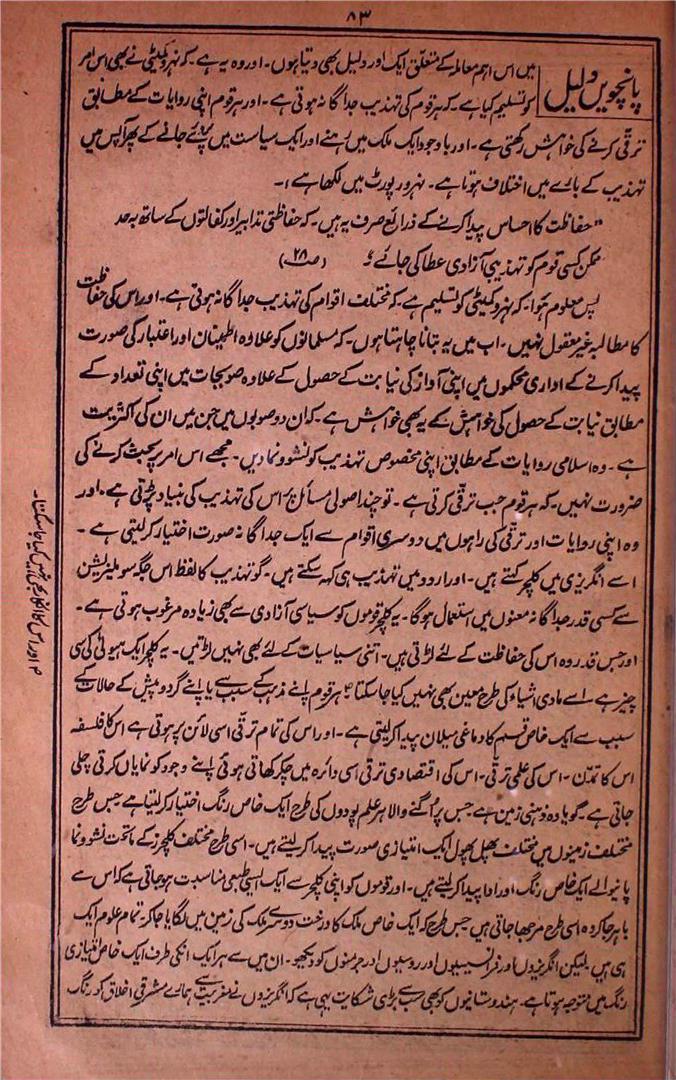 ۸۳
پانچویں دلیل
میں اس اہم معاملہ کے متعلق ایک اور دلیل بھی دیتا ہوں۔ اور وہ یہ ہے۔ کہ نہرو کمیٹی نے بھی اس امر
کو تسلیم کیا ہے۔ کہ ہر قوم کی تہذیب جداگانہ ہوتی ہے۔ اور ہر قوم اپنی روایات کے مطابق
ترقی کرنے کی خواہش رکھتی ہے۔ اور باوجود ایک ملک میں رہنے اور ایک سیاست میں پروئے جانے کے پھر آپس میں
تہذیب کے بارے میں اختلاف ہوتا ہے۔ نہرو رپورٹ میں لکھا ہے۔
"حفاظت کا احساس پیدا کرنے کے ذرائع صرف یہ ہیں۔ کہ حفاظتی تدابیر اور کفالتوں کے ساتھ بہ حد
ممکن کسی قوم کو تہذیبی آزادی عطا کی جائے" (صہ ۲۸)
پس معلوم ہوا۔ کہ نہرو کمیٹی کو تسلیم ہے۔ کہ مختلف اقوام کی تہذیب جداگانہ ہوتی ہے۔ اور اس کی حفاظت
کا مطالبہ غیر معقول نہیں۔ اب میں یہ بتانا چاہتا ہوں۔ کہ مسلمانوں کو علاوہ اطمینان اور اعتبار کی صورت
پیدا کرنے کے اداری محکموں میں اپنی آواز کی نیابت کے حصول کے علاوہ صوبجات میں اپنی تعداد کے
مطابق نیابت کے حصول کی خواہش کے یہ بھی خواہش ہے۔ کہ ان دو صوبوں میں جن میں ان کی اکثریت
ہے۔ وہ اسلامی روایات کے مطابق اپنی مخصوص تہذیب کو نشوونما دیں۔ مجھے اس امر پر بحث کرنے کی
ضرورت نہیں۔ کہ ہر قوم جب ترقی کرتی ہے۔ تو چند اصولی مسائل پر اس کی تہذیب کی بنیاد پڑتی ہے۔ اور
وہ اپنی روایات اور ترقی کی راہوں میں دوسری اقوام سے ایک جداگانہ صورت اختیار کر لیتی ہے۔
اسے انگریزی میں کلچر کہتے ہیں۔ اور اردو میں تہذیب ہی کہہ سکتے ہیں۔ گو تہذیب کا لفظ اس جگہ سویلیزیشن
سے کسی قدر جداگانہ معنوں میں استعمال ہوگا۔ یہ کلچر قوموں کو سیاسی آزادی سے بھی زیادہ مرغوب ہوتی ہے۔
اور جس قدر وہ اس کی حفاظت کے لئے لڑتی ہیں۔ اتنی سیاسیات کے لئے بھی نہیں لڑتیں۔ یہ کلچر ایک ہیولیٰ کی سی
چیز ہے اسے مادی اشیاء کی طرح معین بھی نہیں کیا جا سکتا ۲ ہر قوم اپنے مذہب کے سبب سے یا اپنے گرد و پیش کے حالات کے
سبب سے ایک خاص قسم کا دماغی میلان پیدا کر لیتی ہے۔ اور اس کی تمام ترقی اسی لائن پر ہوتی ہے اس کا فلسفہ
اس کا تمدن۔ اس کی علمی ترقی۔ اس کی اقتصادی ترقی اسی دائرہ میں چکر کھاتی ہوئی اپنے وجود کو نمایاں کرتی چلی
جاتی ہے۔ گویا وہ ذہنی زمین ہے جس پر اُگنے والا ہر علم پودوں کی طرح ایک خاص رنگ اختیار کر لیتا ہے جس طرح
مختلف زمینوں میں مختلف پھل پھول ایک امتیازی صورت پیدا کر لیتے ہیں۔ اسی طرح مختلف کلچرز کے ماتحت نشوونما
پانیوالے ایک خاص رنگ اور ادا پیدا کر لیتے ہیں۔ اور قوموں کو اپنی کلچر سے ایک ایسی طبعی مناسبت ہو جاتی ہے کہ اس سے
باہر جا کر وہ اسی طرح مرجھا جاتی ہیں جس طرح کہ ایک خاص ملک کا درخت دوسرے ملک کی زمین میں لگایا جا کر۔ تمام علوم ایک
ہی ہیں۔ لیکن انگریزوں اور فرانسیسیوں اور روسیوں اور جرمنوں کو دیکھو۔ ان میں سے ہر ایک انکی طرف ایک خاص امتیازی
رنگ میں متوجہ ہوتا ہے۔ ہندوستانیوں کو بھی سب سے بڑی شکایت یہی ہے کہ انگریزوں نے مغربیت سے ہمارے مشرقی اخلاق کو رنگ
۲ اور اس کا انکار بھی نہیں کیا جا سکتا۔